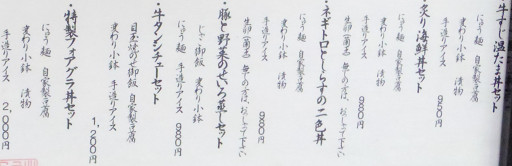 牛すじ温たま丼セット
にゅう麺 自家製豆腐
変わり小鉢 漬物
手造りアイス 980円
・炙り海鮮丼セット
にゅう麺 自家製豆腐
変わり小鉢 漬物
手造りアイス 980円
・ネギトロとしらすの二色丼
生卵(菌志) 無しの方は、おしらせ下さい
にゅう麺 自家製豆腐
変わり小鉢 漬物
手造りアイス 980円
・豚と野菜のせいろ蒸しセット
じゃこ御飯 変わり小鉢
にゅう麺 手造りアイス 980円
・牛タンシチューセット
目玉焼のせ御飯 自家製豆腐
変わり小鉢 手造りアイス
1,200円
・特製フォアグラ丼セット
にゅう麺 自家製豆腐
変わり小鉢 漬物
手造りアイス 2,000円